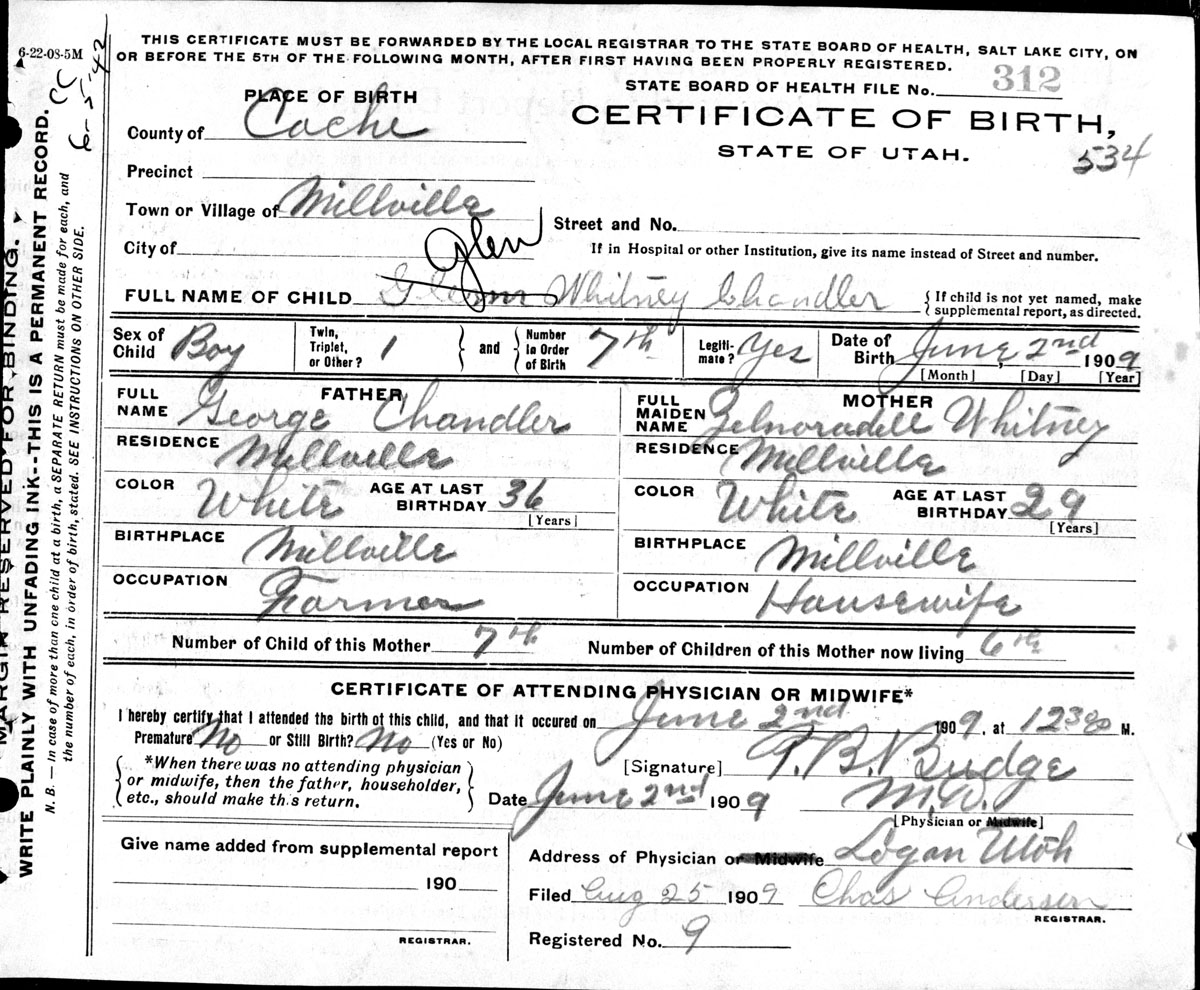 6-22-08-5M
CC
6-5-42
THIS CERTIFICATE MUST BE FORWARDED BY THE LOCAL REGISTRAR TO THE STATE BOARD OF HEALTH, SALT LAKE CITY, ON
OR BEFORE THE 5TH OF THE FOLLOWING MONTH, AFTER FIRST HAVING BEEN PROPERLY REGISTERED.
STATE BOARD OF HEALTH FILE No. 312
PLACE OF BIRTH
CERTIFICATE OF BIRTH,
County of Cache
STATE OF UTAH.
534
Precinct
Town or Village of Millville
Street and No.
City of
If in Hospital or other Institution, give its name instead of Street and number.
Glen
FULL NAME OF CHILD Whitney Chandler
{If child is not yet named, make
supplemental report, as directed.
Sex of Child Boy
Twin, Triplet, or Other? 1 } and { Number in Order of Birth 7th
Legitimate? Yes
Date of Birth June, 2nd 1909
[Month] [Day] [Year]
FATHER
FULL NAME George Chandler
RESIDENCE Millville
COLOR White AGE AT LAST BIRTHDAY 36
[Years]
BIRTHPLACE Millville
OCCUPATION Farmer
MOTHER
FULL MAIDEN NAME Zelnoradell Whitney
RESIDENCE Millville
COLOR White AGE AT LAST BIRTHDAY 29
[Years]
BIRTHPLACE Millville
OCCUPATION Housewife
Number of Child of this Mother 7th Number of Children of this Mother now living 6th
CERTIFICATE OF ATTENDING PHYSICIAN OR MIDWIFE*
I hereby certify that I attended the birth of this child, and that it occured on June 2nd 1909, at 1230 M.
Premature No or Still Birth? No (Yes or No)
{*When there was no attending physician
or midwife, then the father, householder,
etc., should make this return.}
[Signature] T. B. Budge
Date June 2nd 1909 M.D.
[Physician or Midwife]
Give name added from supplemental report
190
REGISTRAR.
Address of Physician or Midwife Logan Utah
Filed Aug 25 1909 Chas Anderson
REGISTRAR.
Registered No. 9
MARGIN RESERVED FOR BINDING.
WRITE PLAINLY WITH UNFADING INK--THIS IS A PERMANENT RECORD.
N. B. — In case of more than one child at a birth, a SEPARATE RETURN must be made for each, and
the number of each, in order of birth, stated. SEE INSTRUCTIONS ON OTHER SIDE.